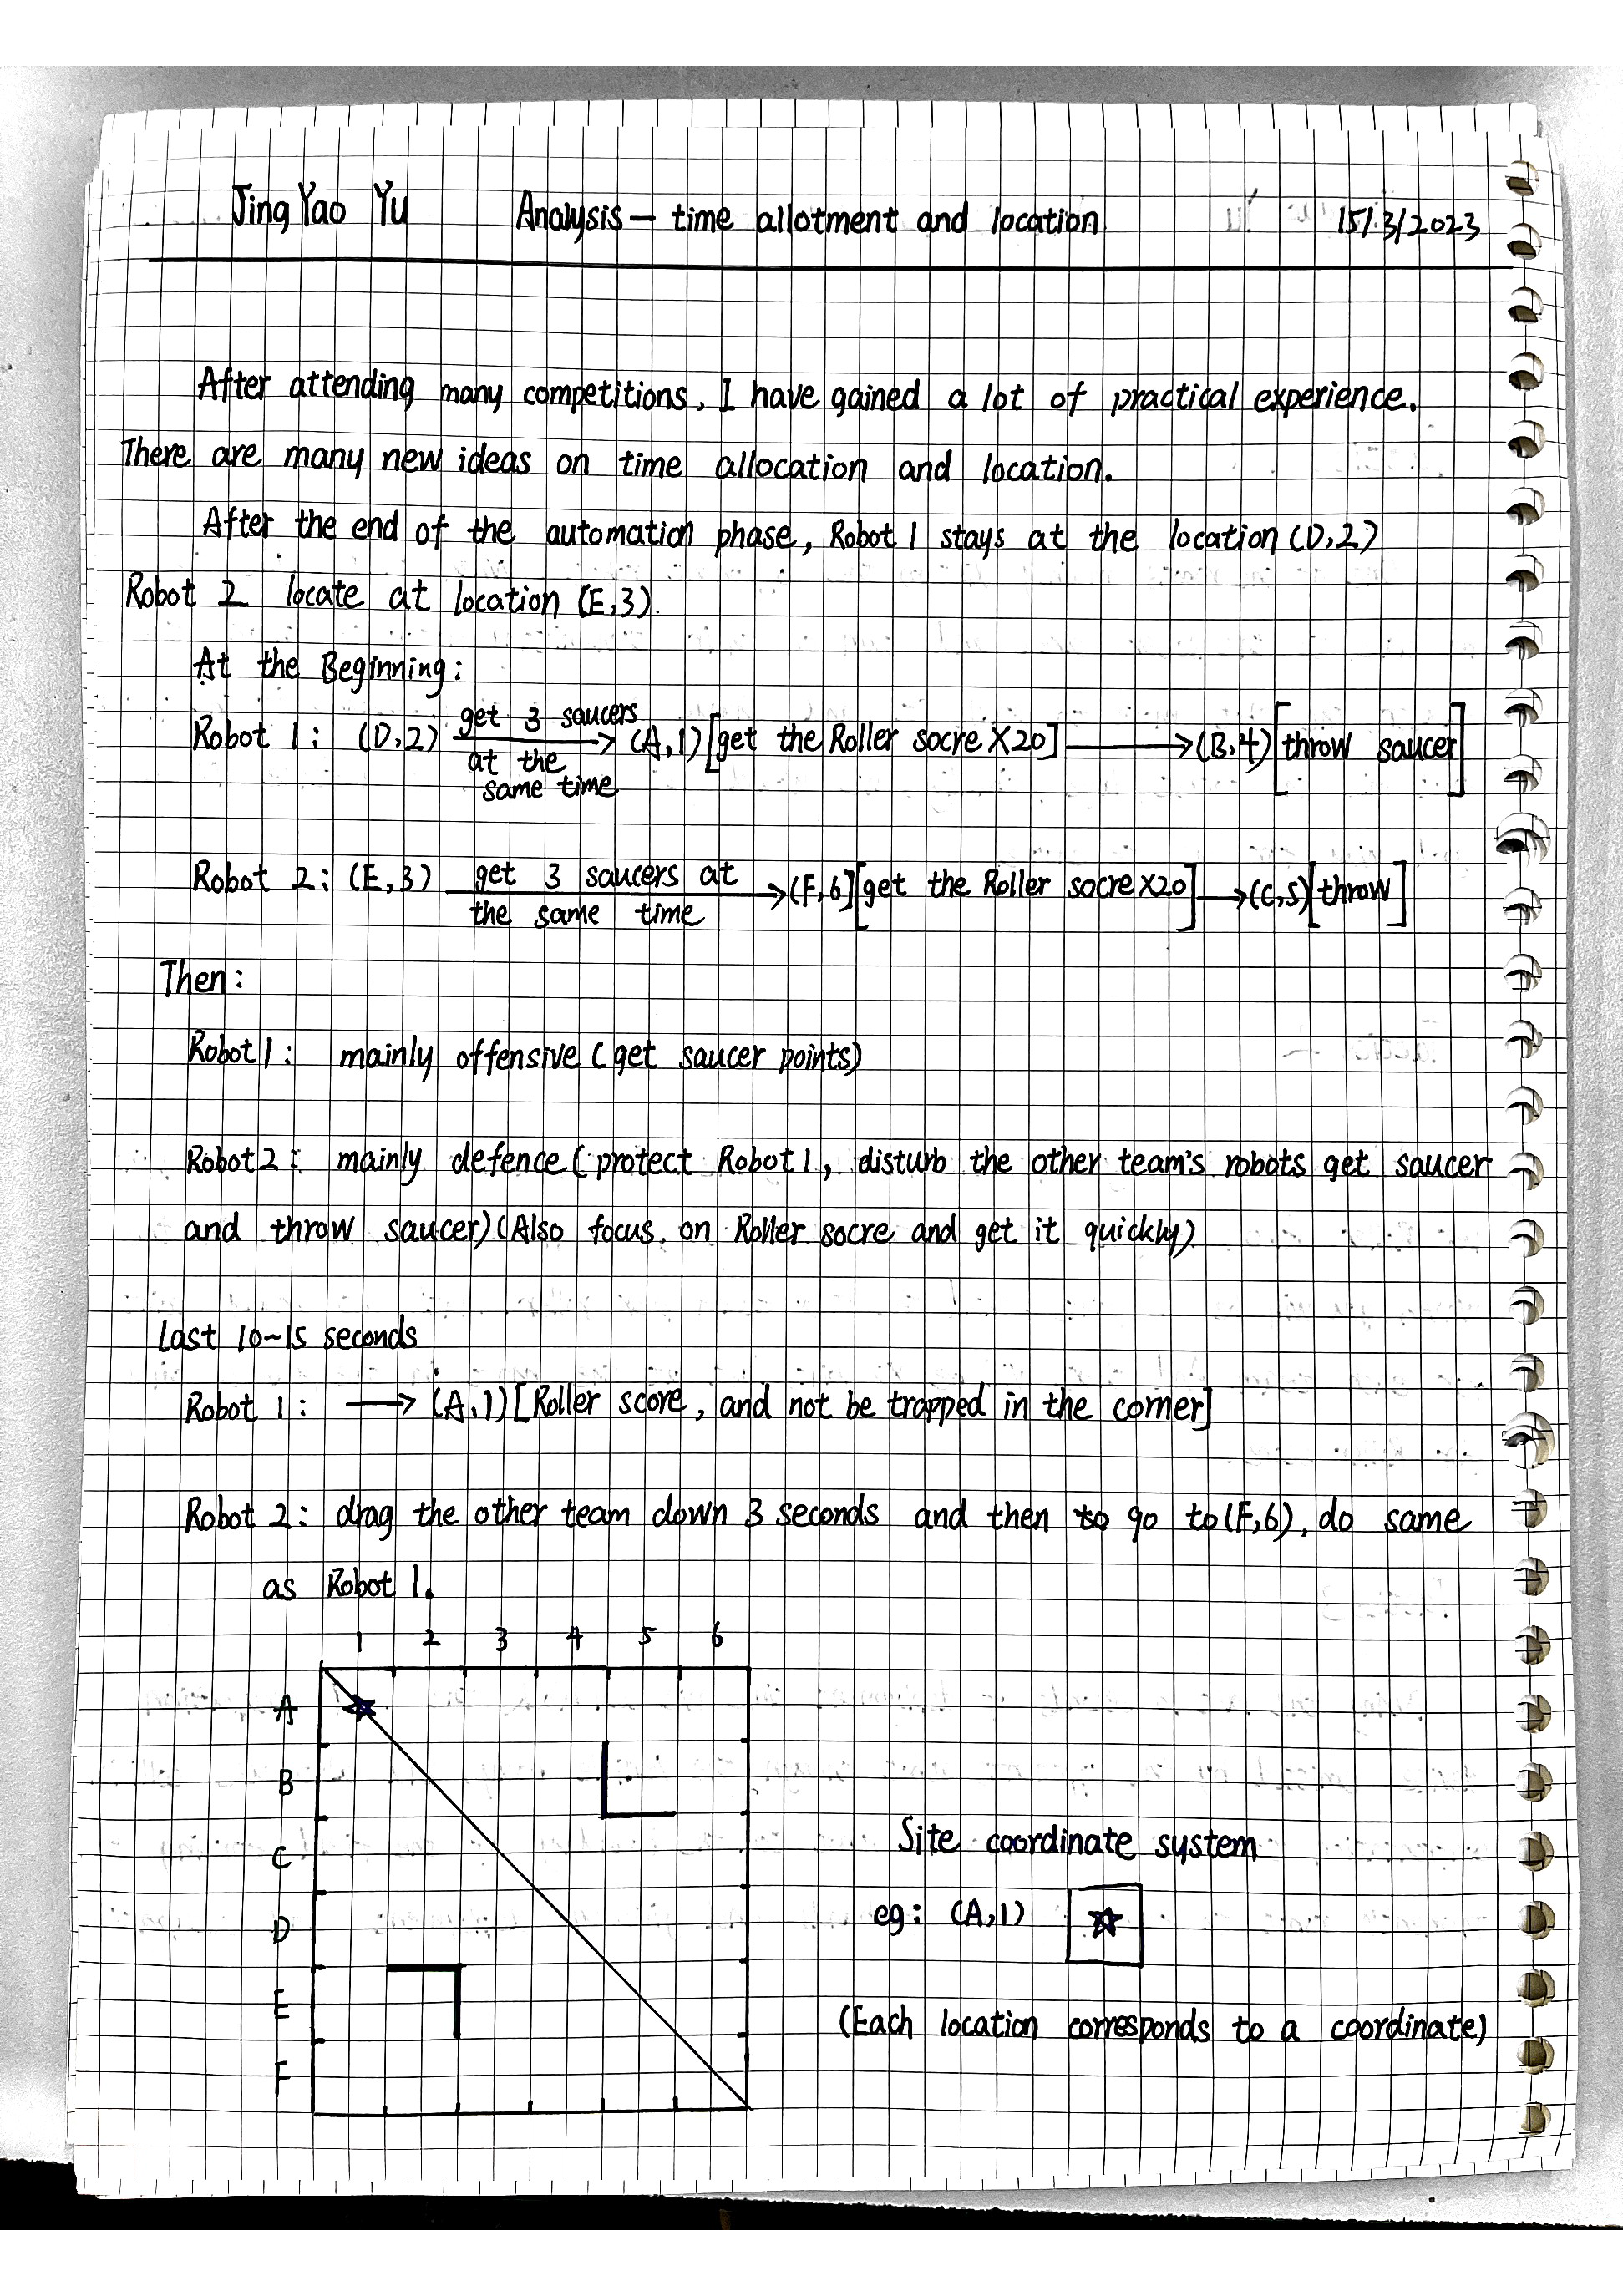 Jing Yao Yu Analysis — time allotment and location 15/3/2023
After attending many competitions, I have gained a lot of practical experience.
There are many new ideas on time allocation and location.
After the end of the automation phase, Robot 1 stays at the location (D,2)
Robot 2 locate at location (E,3).
At the Beginning:
Robot 1: (D,2) get 3 saucers at the same time → (A,1) [get the Roller socre X20] → (B,4) [throw saucer]
Robot 2: (E,3) get 3 saucers at the same time → (F,6] [get the Roller socre X20] → (C,5) [throw]
Then:
Robot 1: mainly offensive (get saucer points)
Robot 2: mainly defence (protect Robot 1, disturb the other team's robots get saucer
and throw saucer) (Also focus on Roller socre and get it quickly)
Last 10~15 seconds
Robot 1: → (A,1) [Roller score, and not be trapped in the corner]
Robot 2: drag the other team down 3 seconds and then to go to (F,6), do same
as Robot 1.
1 2 3 4 5 6
A
B
C
D
E
F
Site coordinate system
eg: (A,1)
(Each location corresponds to a coordinate)